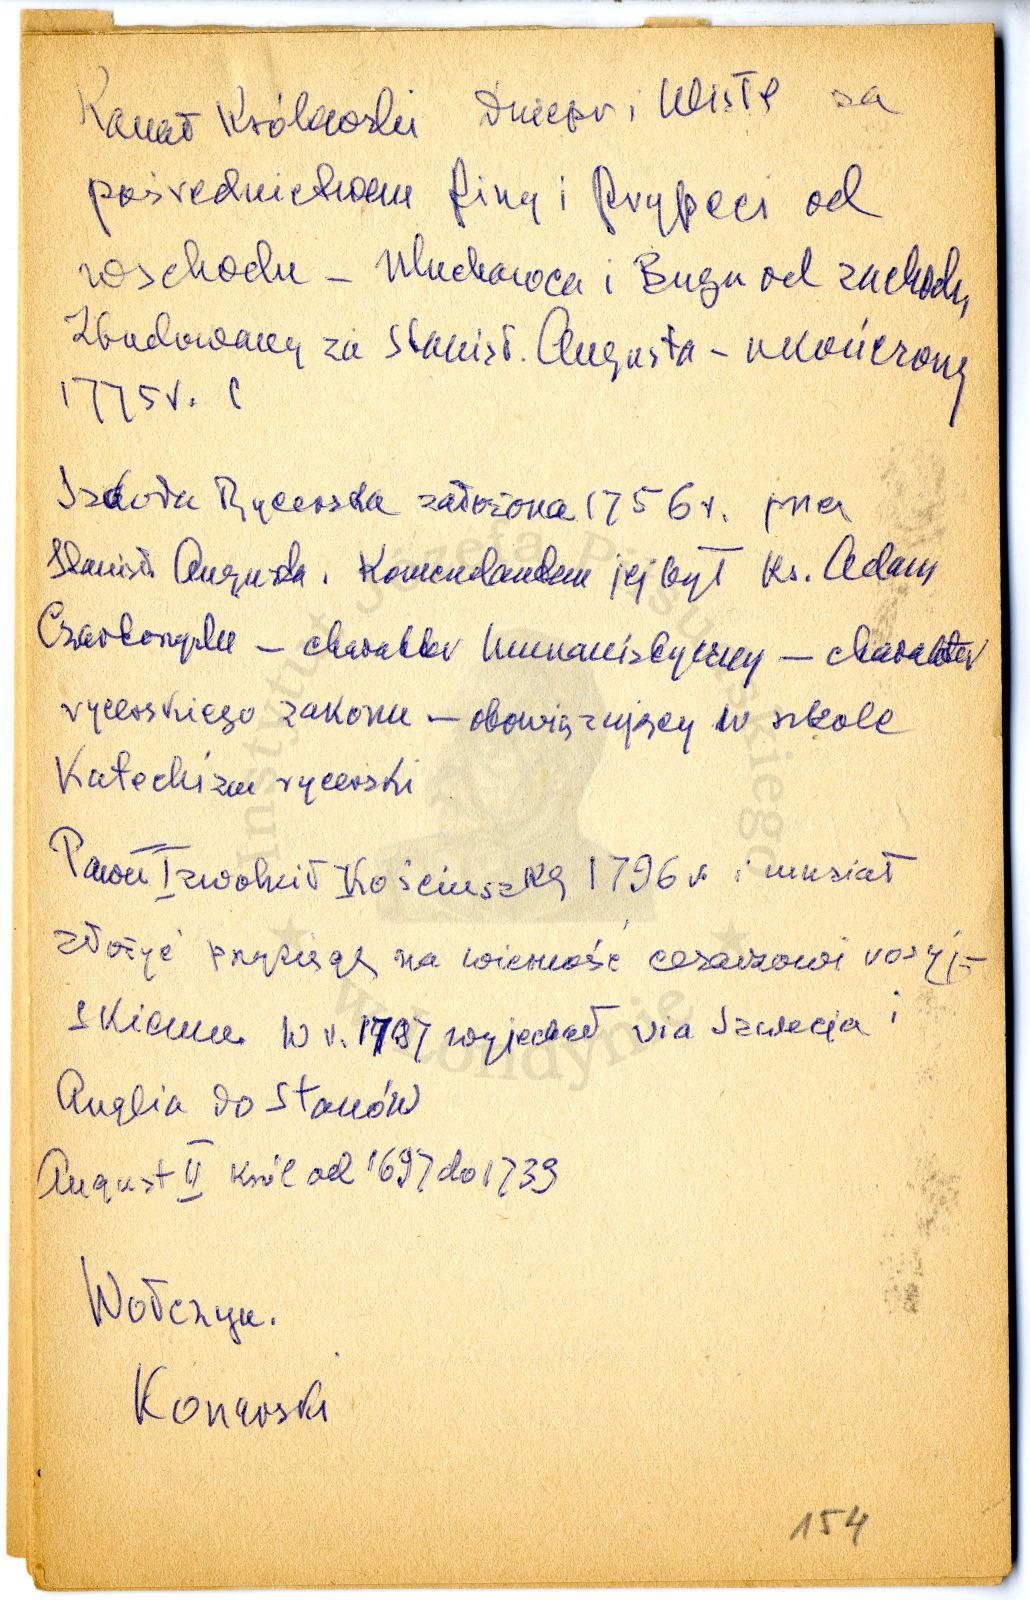 Kanał Królewski Dniepr i Wisłę za
pośrednictwem Piny i Prypeci od
wschodu – Muchawca i Bugu od zachodu,
Zbudowany za Stanisł. Augusta – ukończony
1775 r. (
Szkoła Rycerska założona 1756 r. przez
Stanisł. Augusta. Komendantem jej był Ks. Adam
Czartoryski – charakter humanistyczny – charakter
rycerskiego zakonu – obowiązujący w szkole
Katechizm rycerski
Paweł I zwolnił Kościuszkę 1796 r. i musiał
złożyć przysięgę na wierność cesarzowi rosyj-
skiemu. W r. 1797 wyjechał via Szwecja i
Anglia do Stanów
August II król od 1697 do 1733
Wołczyn.
Konarski
154
Instytut Józefa Piłsudskiego
w Londynie